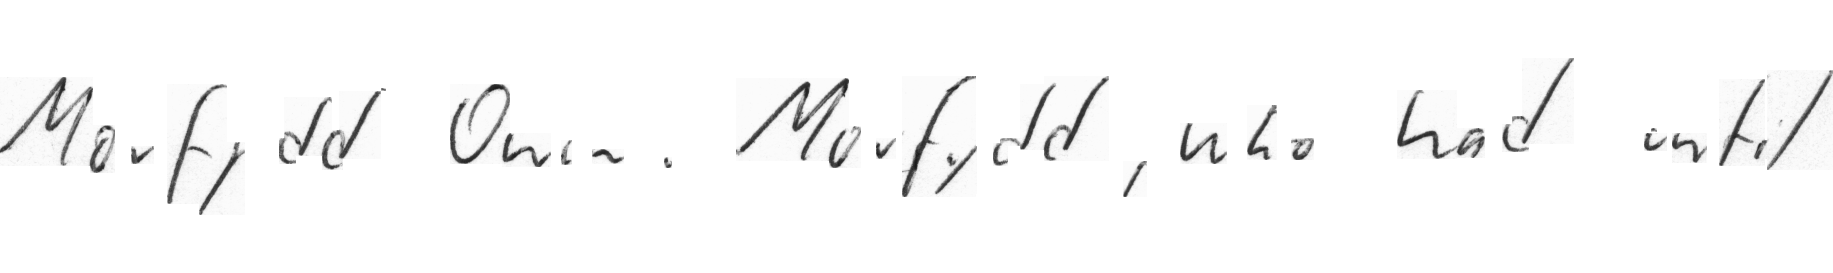 Morfydd Owen. Morfydd, who had until